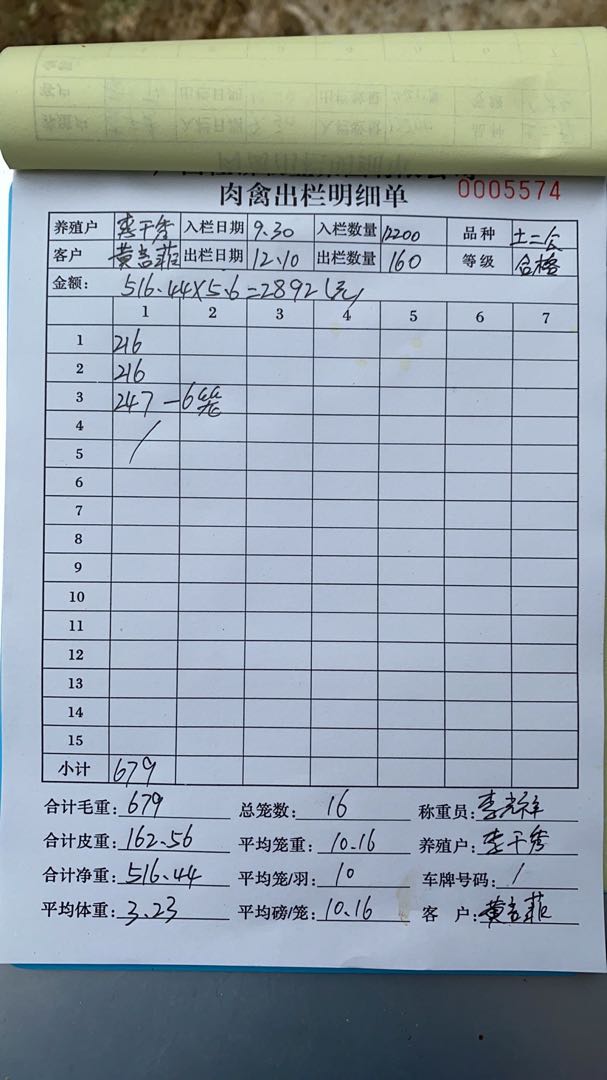 肉禽出栏明细单 0005574
养殖户 李干秀 入栏日期 9.30 入栏数量 12200 品种 土二
客户 出栏日期 12.10 出栏数量 160 等级 合格
金额: 516.44×5.6=2892(元)
1 2 3 4 5 6 7
1 216
2 216
3 247 -6笼
4 /
5
6
7
8
9
10
11
12
13
14
15
小计 679
合计毛重: 679 总笼数: 16 称重员:
合计皮重: 162.56 平均笼重: 10.16 养殖户: 李干秀
合计净重: 516.44 平均笼/羽: 10 车牌号码: /
平均体重: 3.23 平均磅/笼: 10.16 客户: